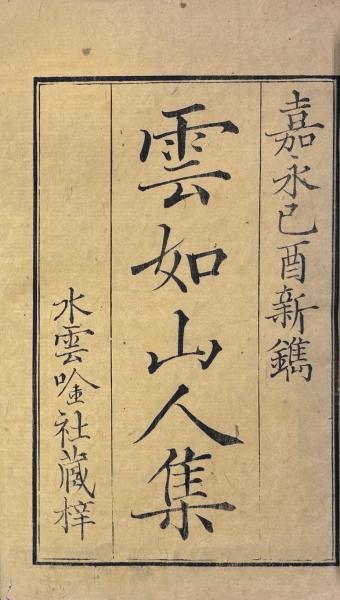 嘉永己酉新鐫
雲如山人集
水雲唫社蔵梓